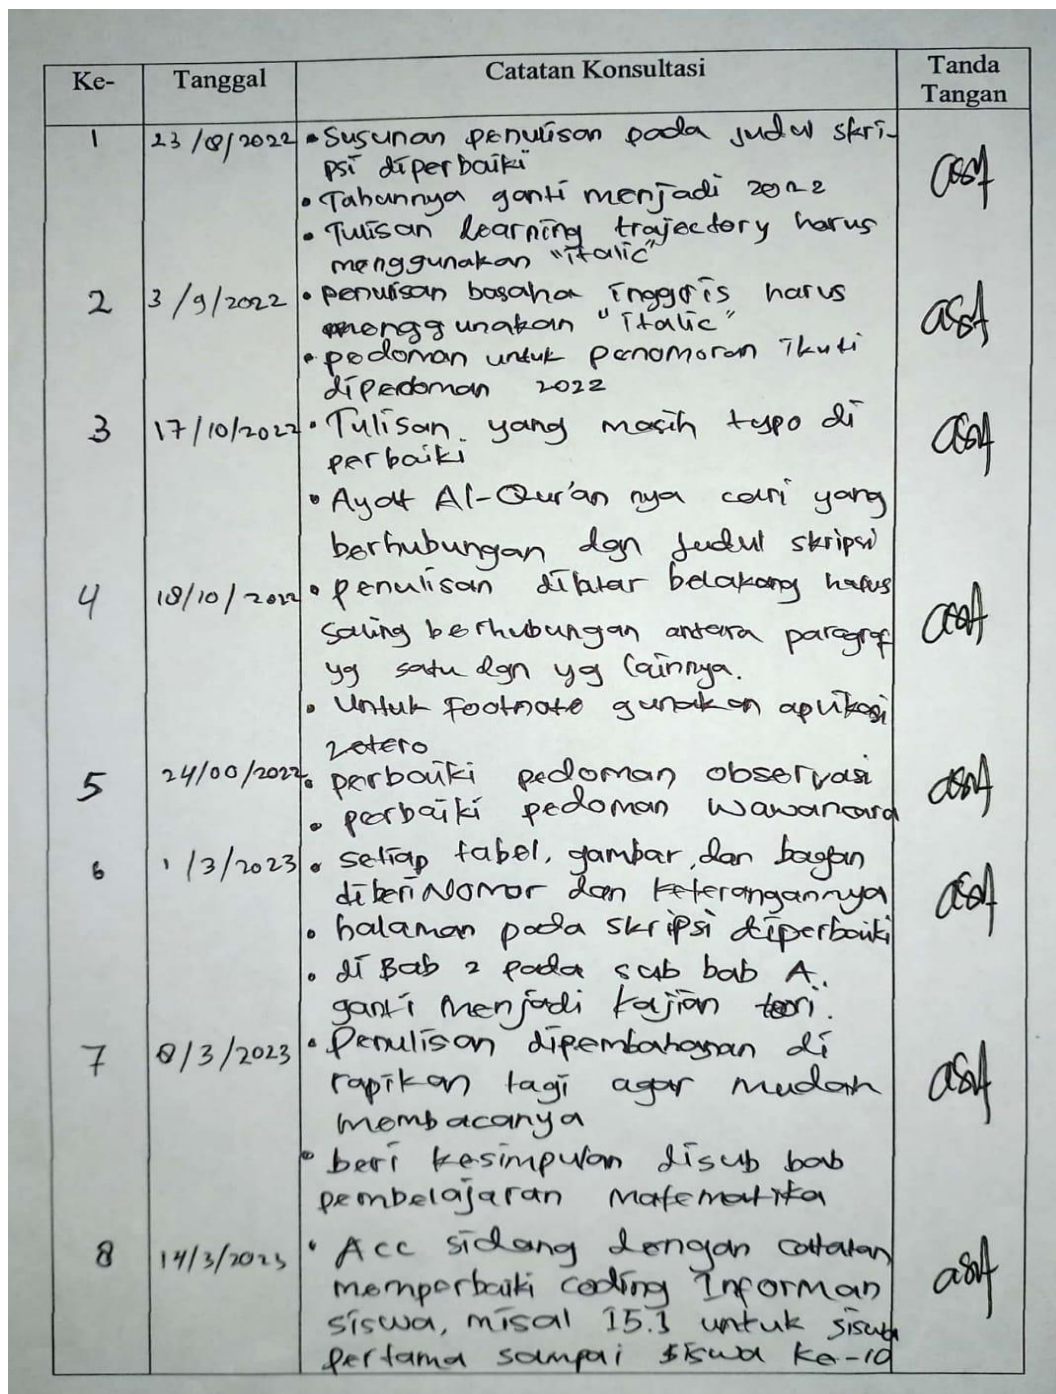 Ke- Tanggal Catatan Konsultasi Tanda Tangan
1 23/8/2022 • Susunan penulisan pada judul skri-
psi diperbaiki
• Tahunnya ganti menjadi 2022
• Tulisan learning trajectory harus
menggunakan "italic"
2 3/9/2022 • penulisan basaha inggris harus
menggunakan "italic"
• pedoman untuk penomoran ikuti
dipedoman 2022
3 17/10/2022 • Tulisan yang masih typo di
perbaiki
• Ayat Al-Qur'an nya cari yang
berhubungan dgn judul skripsi
4 18/10/2022 • penulisan dilatar belakang harus
saling berhubungan antara paragraf
yg satu dgn yg lainnya.
• Untuk footnote gunakan aplikasi
zotero
5 24/00/2022 • perbaiki pedoman observasi
• perbaiki pedoman wawancara
6 1/3/2023 • setiap tabel, gambar, dan bagan
diberi Nomor dan keterangannya
• halaman pada skripsi diperbaiki
• di Bab 2 pada sub bab A.
ganti menjadi kajian teori.
7 8/3/2023 • Penulisan dipembahasan di
rapikan lagi agar mudah
membacanya
• beri kesimpulan disub bab
pembelajaran Matematika
8 14/3/2023 • Acc sidang dengan catatan
memperbaiki coding Informan
siswa, misal 15.1 untuk siswa
pertama sampai siswa ke-10